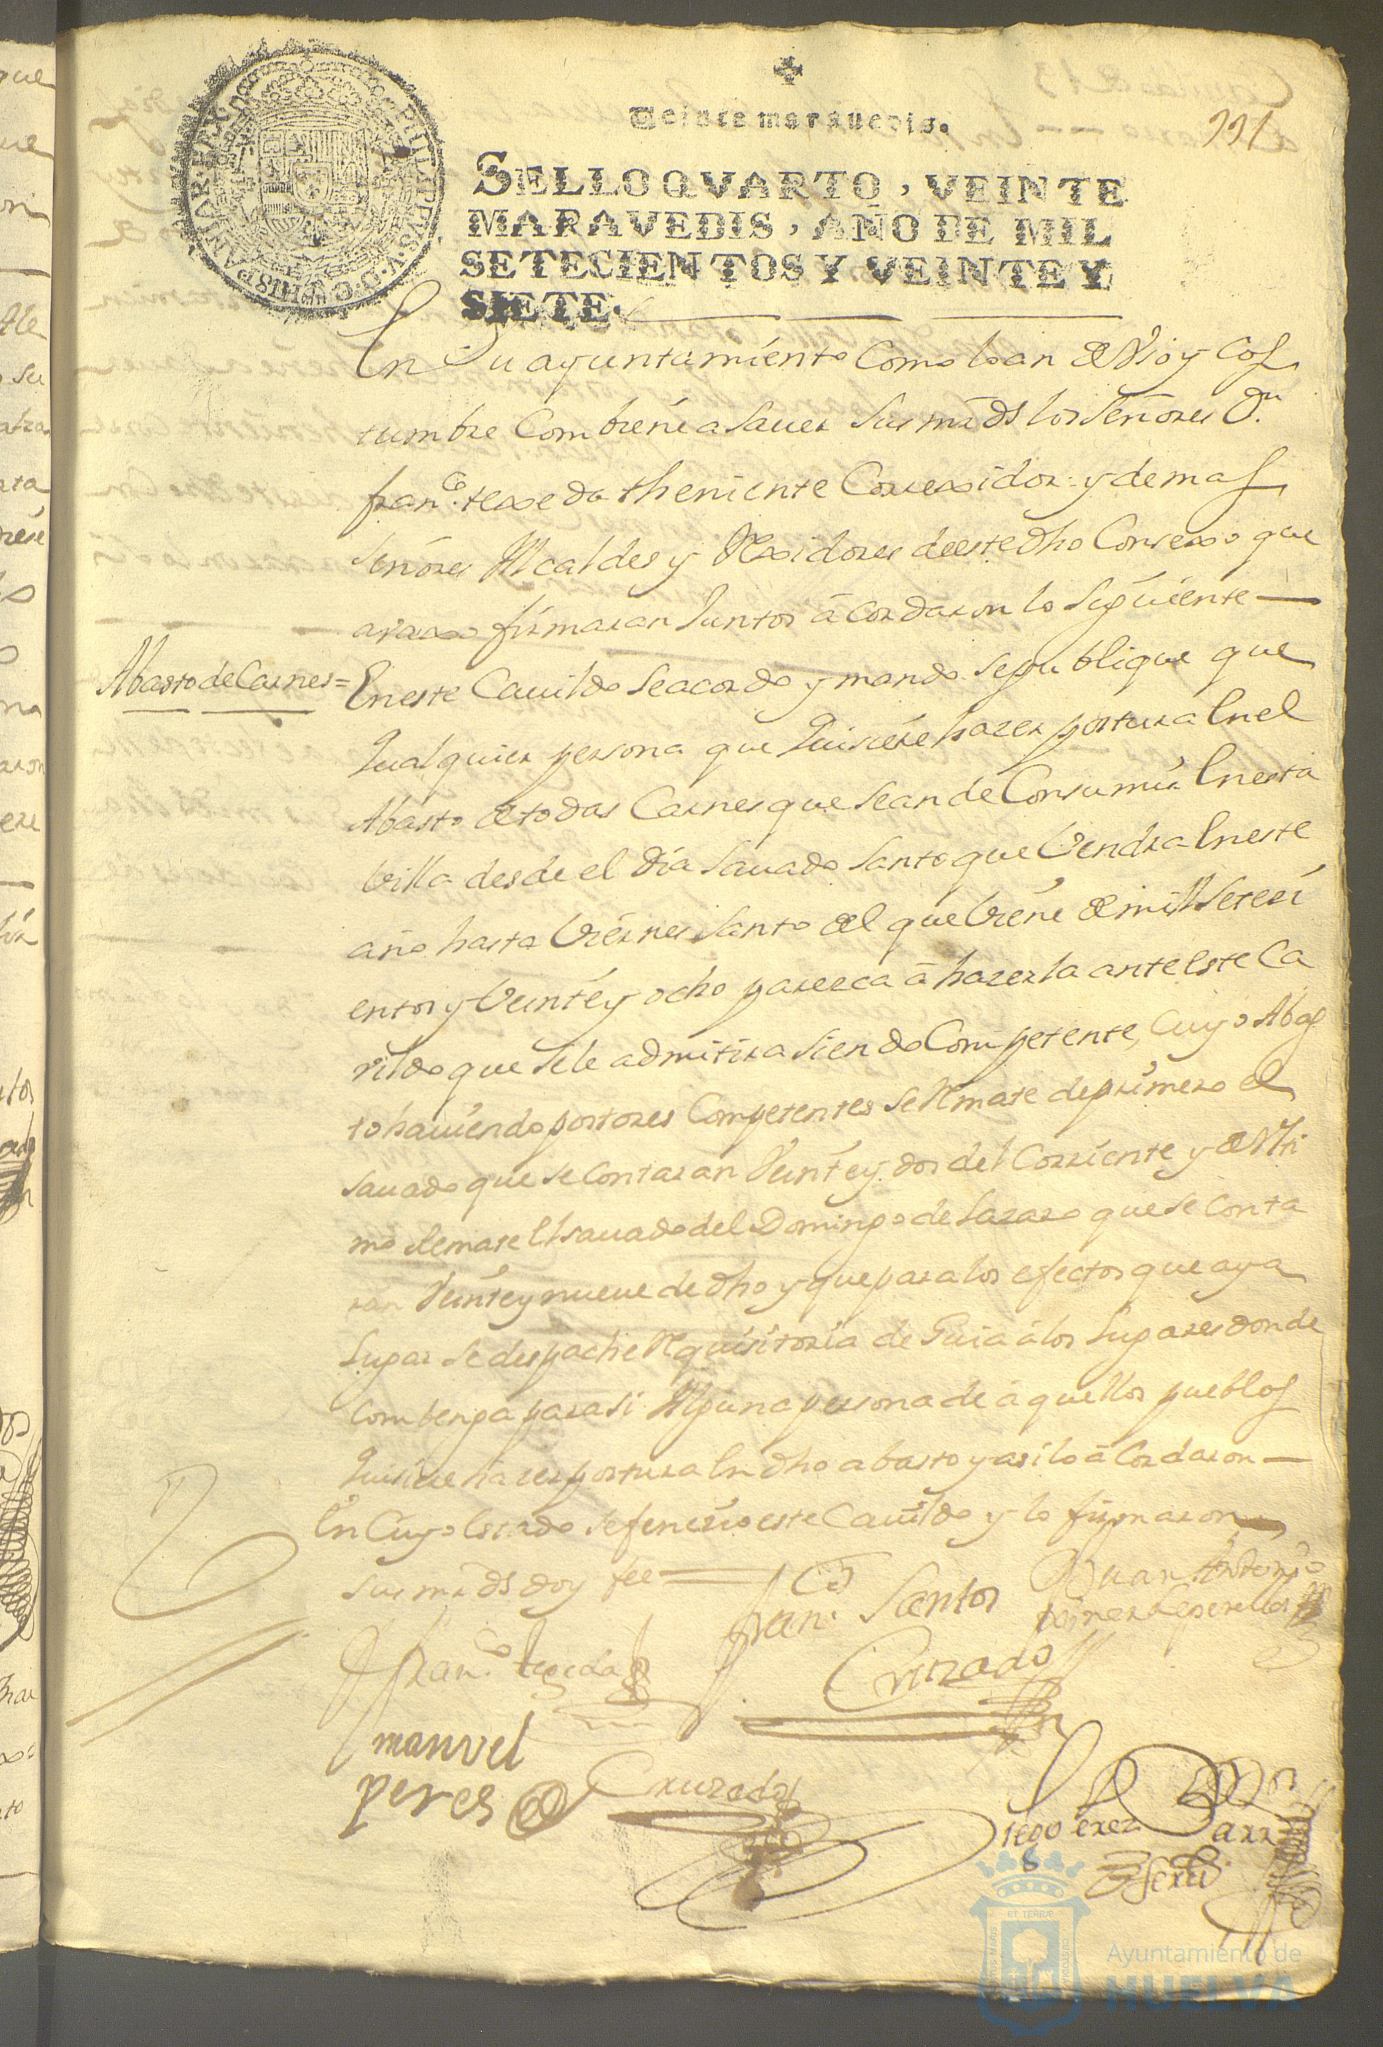 Veinte maravedis.
221
PHILIPPVS·V·D·G·HISPANIAR·REX·
SELLO QVARTO, VEINTE
MARAVEDIS, AÑO DE MIL
SETECIENTOS Y VEINTE Y
SIETE.
En Su ayuntamiento Como loan de Vso y Cos
tumbre Combiene a Sauer Sus mrds los Señores Dn
franco. texeda theniente Correxidor y demas
Señores Alcaldes y Rexidores de este dho Consexo que
avaxo firmaran Juntos acordaron lo Siguiente
Abasto de Carnes =
En este Cauildo Seacordo y mando Se publique que
qualquier persona que quisiere hazer postura En el
Abasto de todas Carnes que Sean de Consumir En esta
Villa desde el dia Sauado Santo que Vendra En este
año hasta Viernes Santo del que Viene de mill Seteci
entos y Veinte y ocho paresca a hazerla ante este Ca
vildo que Sele admitira Siendo Competente, Cuyo Abas
to hauiendo postores Competentes Se Remate de primero el
Sauado que se contaran Veinte y dos del Corriente y de Vlti
mo Remate El Sauado del Domingo de Lazaro que se Conta
ran Veinte y nueue de dho y que para los efectos que aya
Lugar Se despache Requisitoria de Guia a los Lugares donde
Combenga para si Alguna persona de aquellos pueblos
quisiere hazer postura En dho abasto y asi lo acordaron
En Cuyo Estado Se fenecio este Cauildo y lo firmaron
Sus mrds doy fee
Juan Antonio
Franco. Santos
Cruzado
Franco. texeda
manuel
peres
Cruzado
Diego Perez Barr
Ayuntamiento de
HUELVA